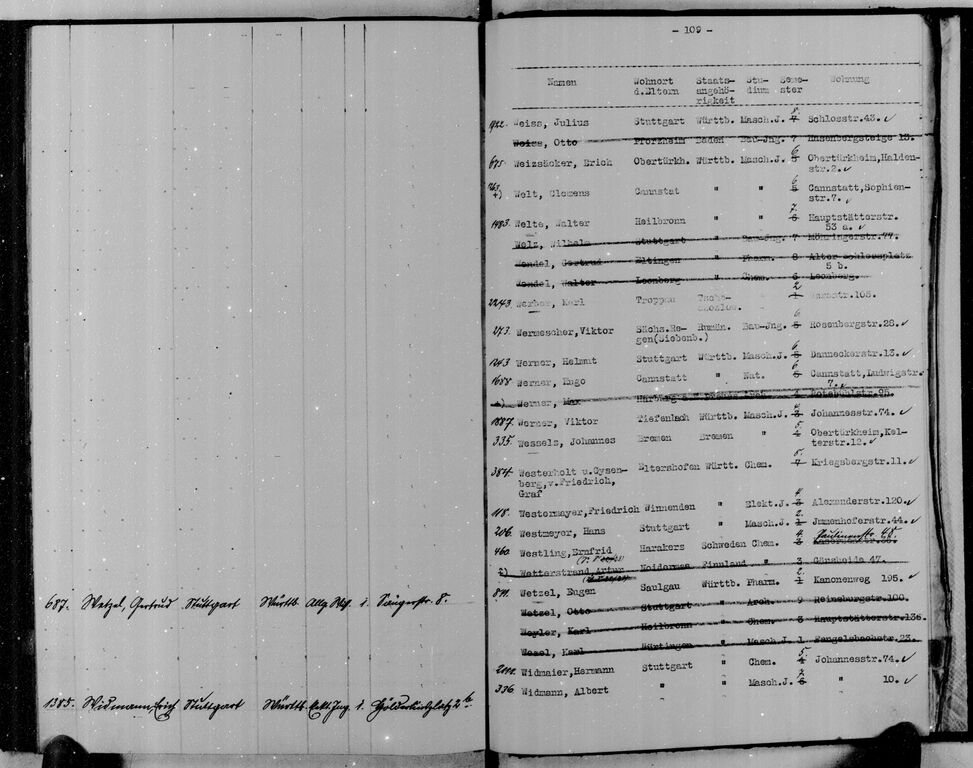 687. Wetzel, Gertrud Stuttgart Württb. Allg. Wiss. 1. Sängerstr. 8.
1385. Widmann, Erich Stuttgart Württb. Elekt. Ing. 1. Hölderlinplatz 2b
- 109 -
Namen Wohnort Staats- Stu- Seme- Wohnung
d.Eltern angehö- dium ster
rigkeit
8.
1422. Weiss, Julius Stuttgart Württb. Masch.J. 7 Schlosstr.43. ✓
Weiss, Otto Pforzheim Baden Bau-Jng. 7 Hasenbergsteige 13.
6
675. Weizsäcker, Erich Obertürkh. Württb. Masch.J. 5 Obertürkheim,Halden-
str.2. ✓
6
Welt, Clemens Cannstat " " 5 Cannstatt,Sophien-
str.7. ✓
7.
1483. Welte, Walter Heilbronn " " 6 Hauptstätterstr.
53 a. ✓
Welz, Wilhelm Stuttgart " Bau-Jng. 7 Möhringerstr.77.
Wendel, Gertrud Eltingen " Pharm. 8 Alter Schlossplatz
5 b.
Wendel, Walter Leonberg " Chem. 6 Leonberg.
2
2243. Werber, Karl Troppau Tsche- 1 str.105.
choslow.
6
273. Wermescher, Viktor Sächs.Re- Rumän. Bau-Jng. 5 Rosenbergstr.28. ✓
gen(Siebenb.)
6.
1243 Werner, Helmut Stuttgart Württb. Masch.J. 5 Danneckerstr.13. ✓
6
1688 Werner, Hugo Cannstatt " Nat. 5 Cannstatt,Ludwigstr.
7. ✓
Werner, Max Harburg Rotebühlstr.95.
4
1887. Werner, Viktor Tiefenbach Württb. Masch.J. 3 Johannesstr.74. ✓
5.
335. Wessels, Johannes Bremen Bremen " 4 Obertürkheim,Kel-
terstr.12. ✓
384. Westerholt u.Gysen- Eltershofen Württ. Chem. 7 Kriegsbergstr.11. ✓
berg,v.Friedrich,
Graf
4.
118. Westermayer,Friedrich Winnenden " Elekt.J. 3 Alexanderstr.120. ✓
2.
206. Westmeyer, Hans Stuttgart " Masch.J. 1 Jmmenhoferstr.44. ✓
4. Paulinenstr. 48.
460. Westling,Ernfrid Harakers Schweden Chem. 3
Wetterstrand,Artur Finnland " 3 Gänsheide 47.
2.
811. Wetzel, Eugen Saulgau Württb. Pharm. 1 Kanonenweg 195. ✓
Wetzel, Otto Stuttgart " Arch. 9 Reinsburgstr.100.
Weyler, Karl Heilbronn " Chem. 3 Hauptstätterstr.136.
Wezel, Karl Nürtingen " Masch.J. 1 Fangelsbachstr.23.
5.
Widmaier,Hermann Stuttgart " Chem. 4 Johannesstr.74. ✓
7.
336. Widmann, Albert " " Masch.J. 6 " 10. ✓